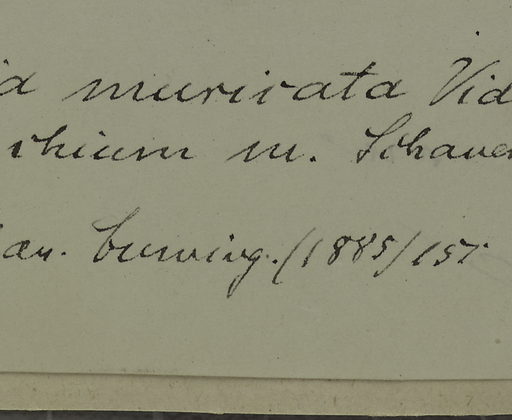 muricata Vid
chium m. Schauer
an. Cuming. (1885) 157